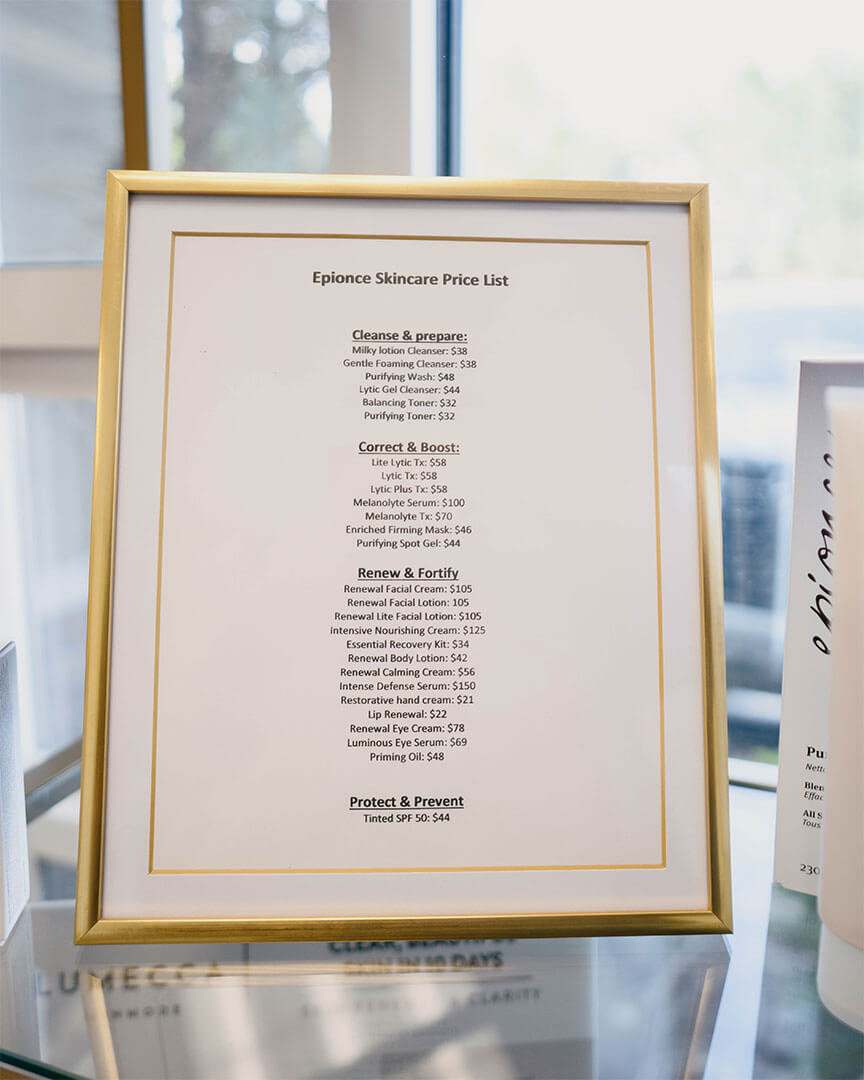 Epionce Skincare Price List
Cleanse & prepare:
Milky lotion Cleanser: $38
Gentle Foaming Cleanser: $38
Purifying Wash: $48
Lytic Gel Cleanser: $44
Balancing Toner: $32
Purifying Toner: $32
Correct & Boost:
Lite Lytic Tx: $58
Lytic Tx: $58
Lytic Plus Tx: $58
Melanolyte Serum: $100
Melanolyte Tx: $70
Enriched Firming Mask: $46
Purifying Spot Gel: $44
Renew & Fortify
Renewal Facial Cream: $105
Renewal Facial Lotion: 105
Renewal Lite Facial Lotion: $105
Intensive Nourishing Cream: $125
Essential Recovery Kit: $34
Renewal Body Lotion: $42
Renewal Calming Cream: $56
Intense Defense Serum: $150
Restorative hand cream: $21
Lip Renewal: $22
Renewal Eye Cream: $78
Luminous Eye Serum: $69
Priming Oil: $48
Protect & Prevent
Tinted SPF 50: $44
All S
Tous
230
LUMECCA
CLEAR,
SKIN IN 10 DAYS
CLARITY